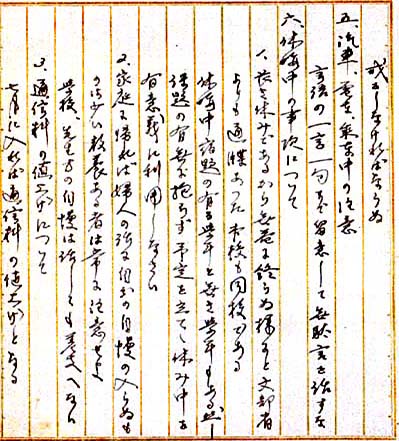 戒しなければならぬ
五、汽車、電車、乗車中の注意
言語の一言一句にも留意して無駄言を話すな
六、休暇中の事項について
1、長き休みであるから無益に終らぬ様にと文部省
よりも通牒あった本校も同様である
休暇中宿題の有る学年と無き学年もある然し
宿題の有無に拘らず予定を立てて休み中を
有意義に利用しなさい
2、家庭に帰れば婦人の強き自分の自慢の入らぬも
のは少い教養ある者は常に注意せよ
学校、先生方の自慢は話しても差支へない
3、通信料の値上げについて
七月に入れば通信料の値上げとなる